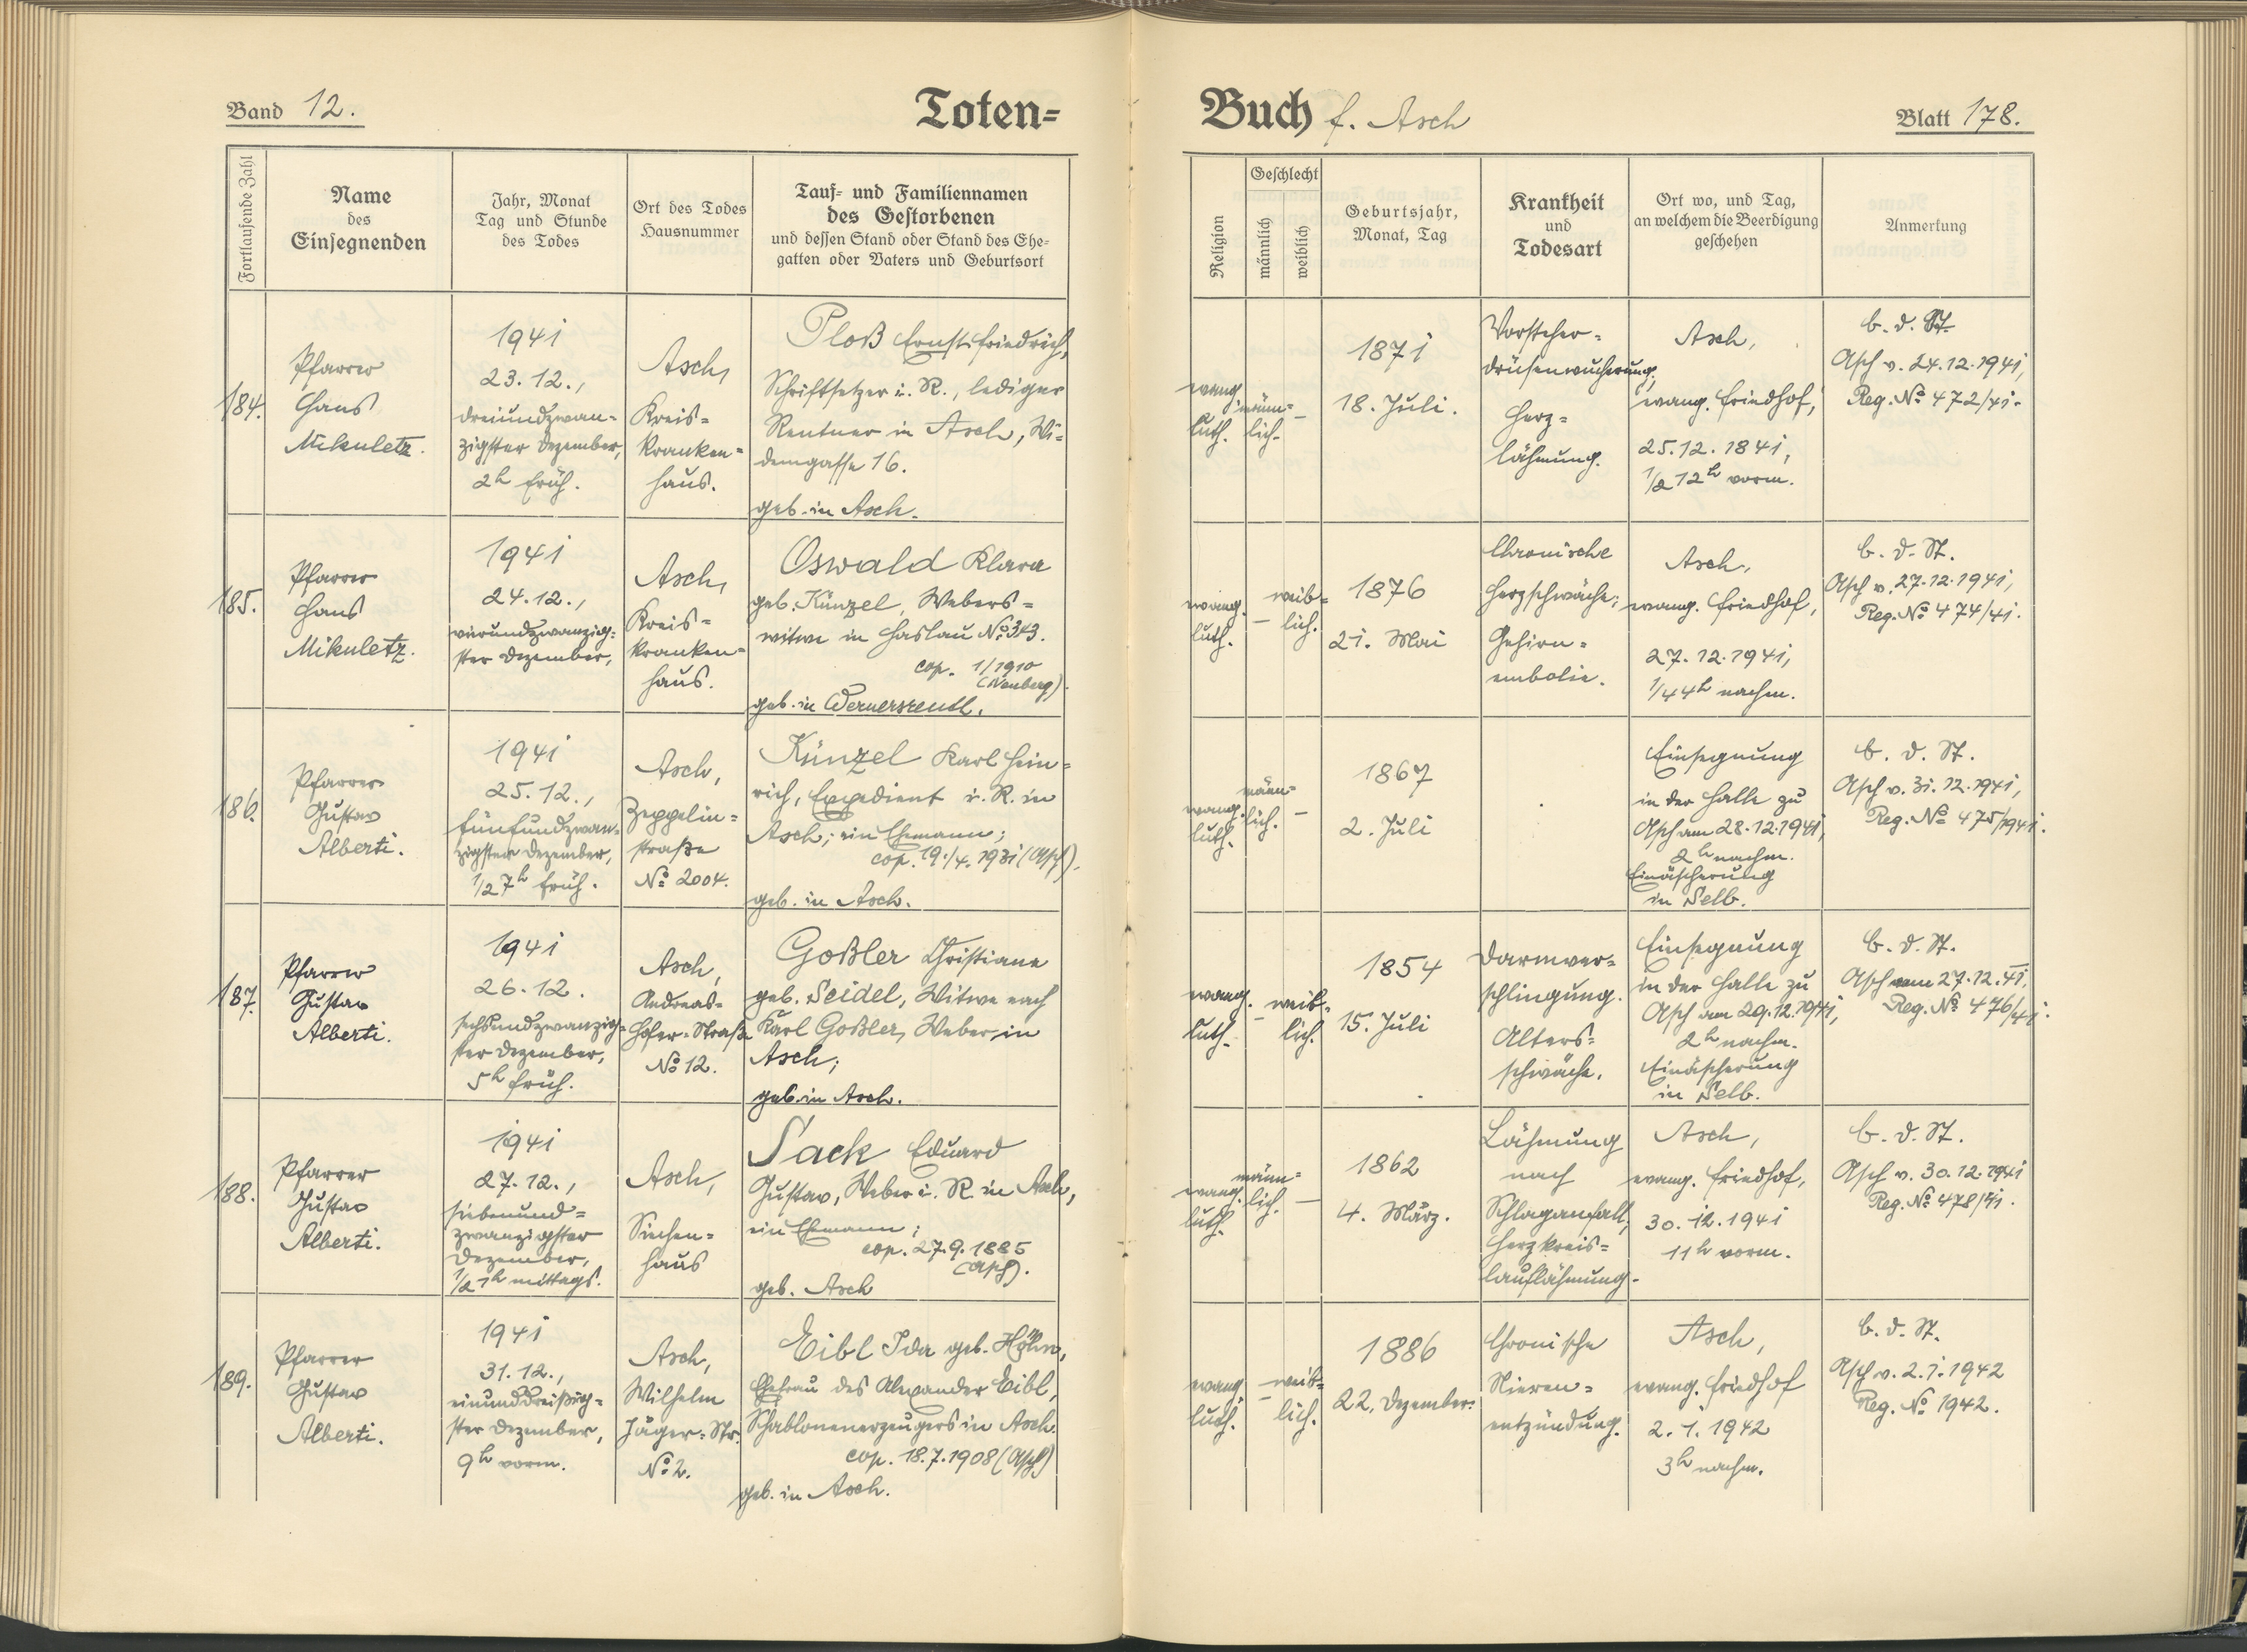 Band 12.
Toten-
Buch f. Asch
Blatt 178.
Fortlaufende Zahl
Name
des
Einsegnenden
Jahr, Monat
Tag und Stunde
des Todes
Ort des Todes
Hausnummer
Tauf- und Familiennamen
des Gestorbenen
und dessen Stand oder Stand des Ehe-
gatten oder Vaters und Geburtsort
Religion
Geschlecht
männlich
weiblich
Geburtsjahr,
Monat, Tag
Krankheit
und
Todesart
Ort wo, und Tag,
an welchem die Beerdigung
geschehen
Anmerkung
184.
Pfarrer
Hans
Mikuletz.
1941
23.12.,
dreiundzwan-
zigster Dezember,
2h früh.
Asch,
Kreis-
kranken-
haus.
Ploß Ernst Friedrich,
Schriftsetzer i. R., lediger
Rentner in Asch, Wi-
demgasse 16.
geb. in Asch.
evang.
luth.
männ-
lich.
–
1871
18. Juli.
Vorsteher-
drüsenwucherung,
Herz-
lähmung.
Asch,
evang. Friedhof,
25.12.1841,
1/2 12h vorm.
b. d. St.
Asch v. 24.12.1941,
Reg. No 472/41.
185.
Pfarrer
Hans
Mikuletz.
1941
24.12.,
vierundzwanzig-
ster Dezember,
Asch,
Kreis-
kranken-
haus.
Oswald Klara
geb. Künzel, Webers-
witwe in Haslau No 343.
cop. 1/1910
(Neuberg).
geb. in Wernersreuth.
evang.
luth.
–
weib-
lich.
1876
21. Mai
Chronische
Herzschwäche;
Gehirn-
embolie.
Asch,
evang. Friedhof,
27.12.1941,
1/4 4h nachm.
b. d. St.
Asch v. 27.12.1941,
Reg. No 474/41.
186.
Pfarrer
Gustav
Alberti.
1941
25.12.,
fünfundzwan-
zigster Dezember,
1/2 7h früh.
Asch,
Zeppelin-
straße
No 2004.
Künzel Karl Hein-
rich, Expedient i. R. in
Asch; ein Ehemann;
cop. 19./4. 1931 (Asch).
geb. in Asch.
evang.
luth.
männ-
lich.
–
1867
2. Juli
Einsegnung
in der Halle zu
Asch am 28.12.1941,
2h nachm.
Einäscherung
in Selb.
b. d. St.
Asch v. 31.12.1941,
Reg. No 475/1941.
187.
Pfarrer
Gustav
Alberti.
1941
26.12.
sechsundzwanzig-
ster Dezember,
5h früh.
Asch,
Andreas-
Hofer-Straße
No 12.
Goßler Christiane
geb. Seidel, Witwe nach
Karl Goßler, Weber in
Asch;
geb. in Asch.
evang.
luth.
–
weib-
lich.
1854
15. Juli
Darmver-
schlingung.
Alters-
schwäche.
Einsegnung
in der Halle zu
Asch am 29.12.1941,
2h nachm.
Einäscherung
in Selb.
b. d. St.
Asch vom 27.12.41.
Reg. No 476/41.
188.
Pfarrer
Gustav
Alberti.
1941
27.12.,
siebenund-
zwanzigster
Dezember,
1/2 1h mittags.
Asch,
Siechen-
haus
Sack Eduard
Gustav, Weber i. R. in Asch,
ein Ehemann;
cop. 27.9.1885
(Asch).
geb. Asch
evang.
luth.
männ-
lich.
–
1862
4. März.
Lähmung
nach
Schlaganfall,
Herzkreis-
lauflähmung.
Asch,
evang. Friedhof,
30.12.1941
11h vorm.
b. d. St.
Asch v. 30.12.1941
Reg. No 478/41.
189.
Pfarrer
Gustav
Alberti.
1941
31.12.,
einunddreißig-
ster Dezember,
9h vorm.
Asch,
Wilhelm
Jäger-Str.
No 2.
Eibl Ida geb. Höhn,
Ehefrau des Alexander Eibl,
Schablonenerzeugers in Asch.
cop. 18.7.1908 (Asch)
geb. in Asch.
evang.
luth.
–
weib-
lich.
1886
22. Dezember.
Chronische
Nieren-
entzündung.
Asch,
evang. Friedhof
2.1.1942
3h nachm.
b. d. St.
Asch v. 2.1.1942
Reg. No 1942.